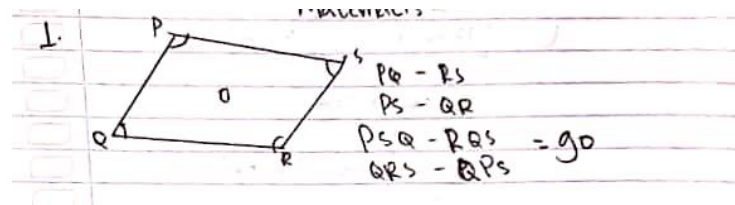 1.
P
S
O
Q
R
PQ - RS
PS - QR
PSQ - RQS = 90
QRS - QPS